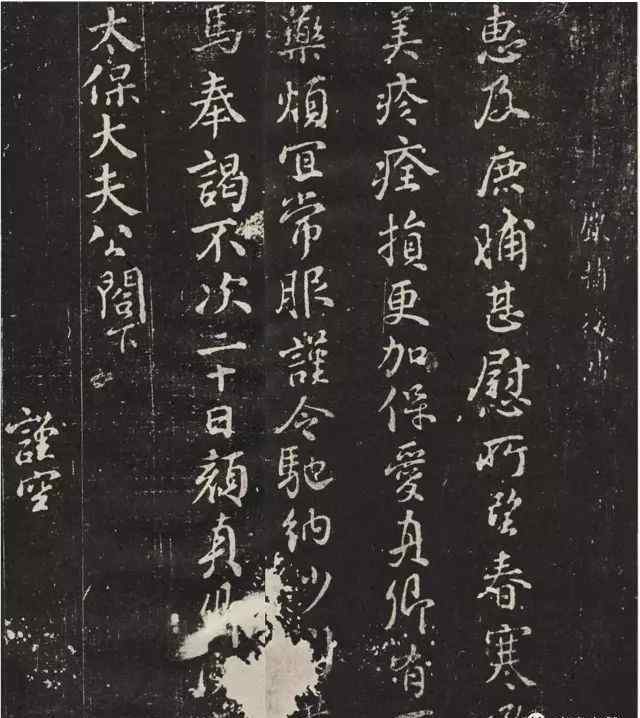 惠及鹿脯甚慰所望春寒
美疹痊損更加保愛真卿有
藥煩宜常服謹令馳納少
馬奉謁不次二十日顏真卿
太保大夫公閤下
謹空